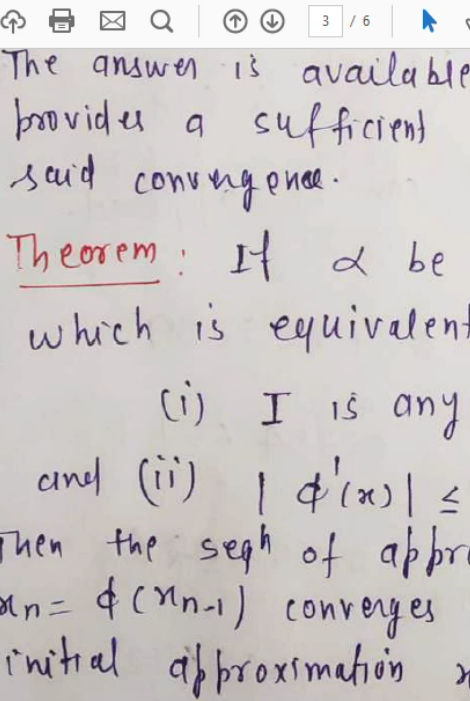 3 / 6
The answer is available
provides a sufficient
said convergence.
Theorem : If α be
which is equivalent
(i) I is any
and (ii) | ϕ'(x) | ≤
Then the seqn of appro
xn = ϕ(xn-1) converges
initial approximation x